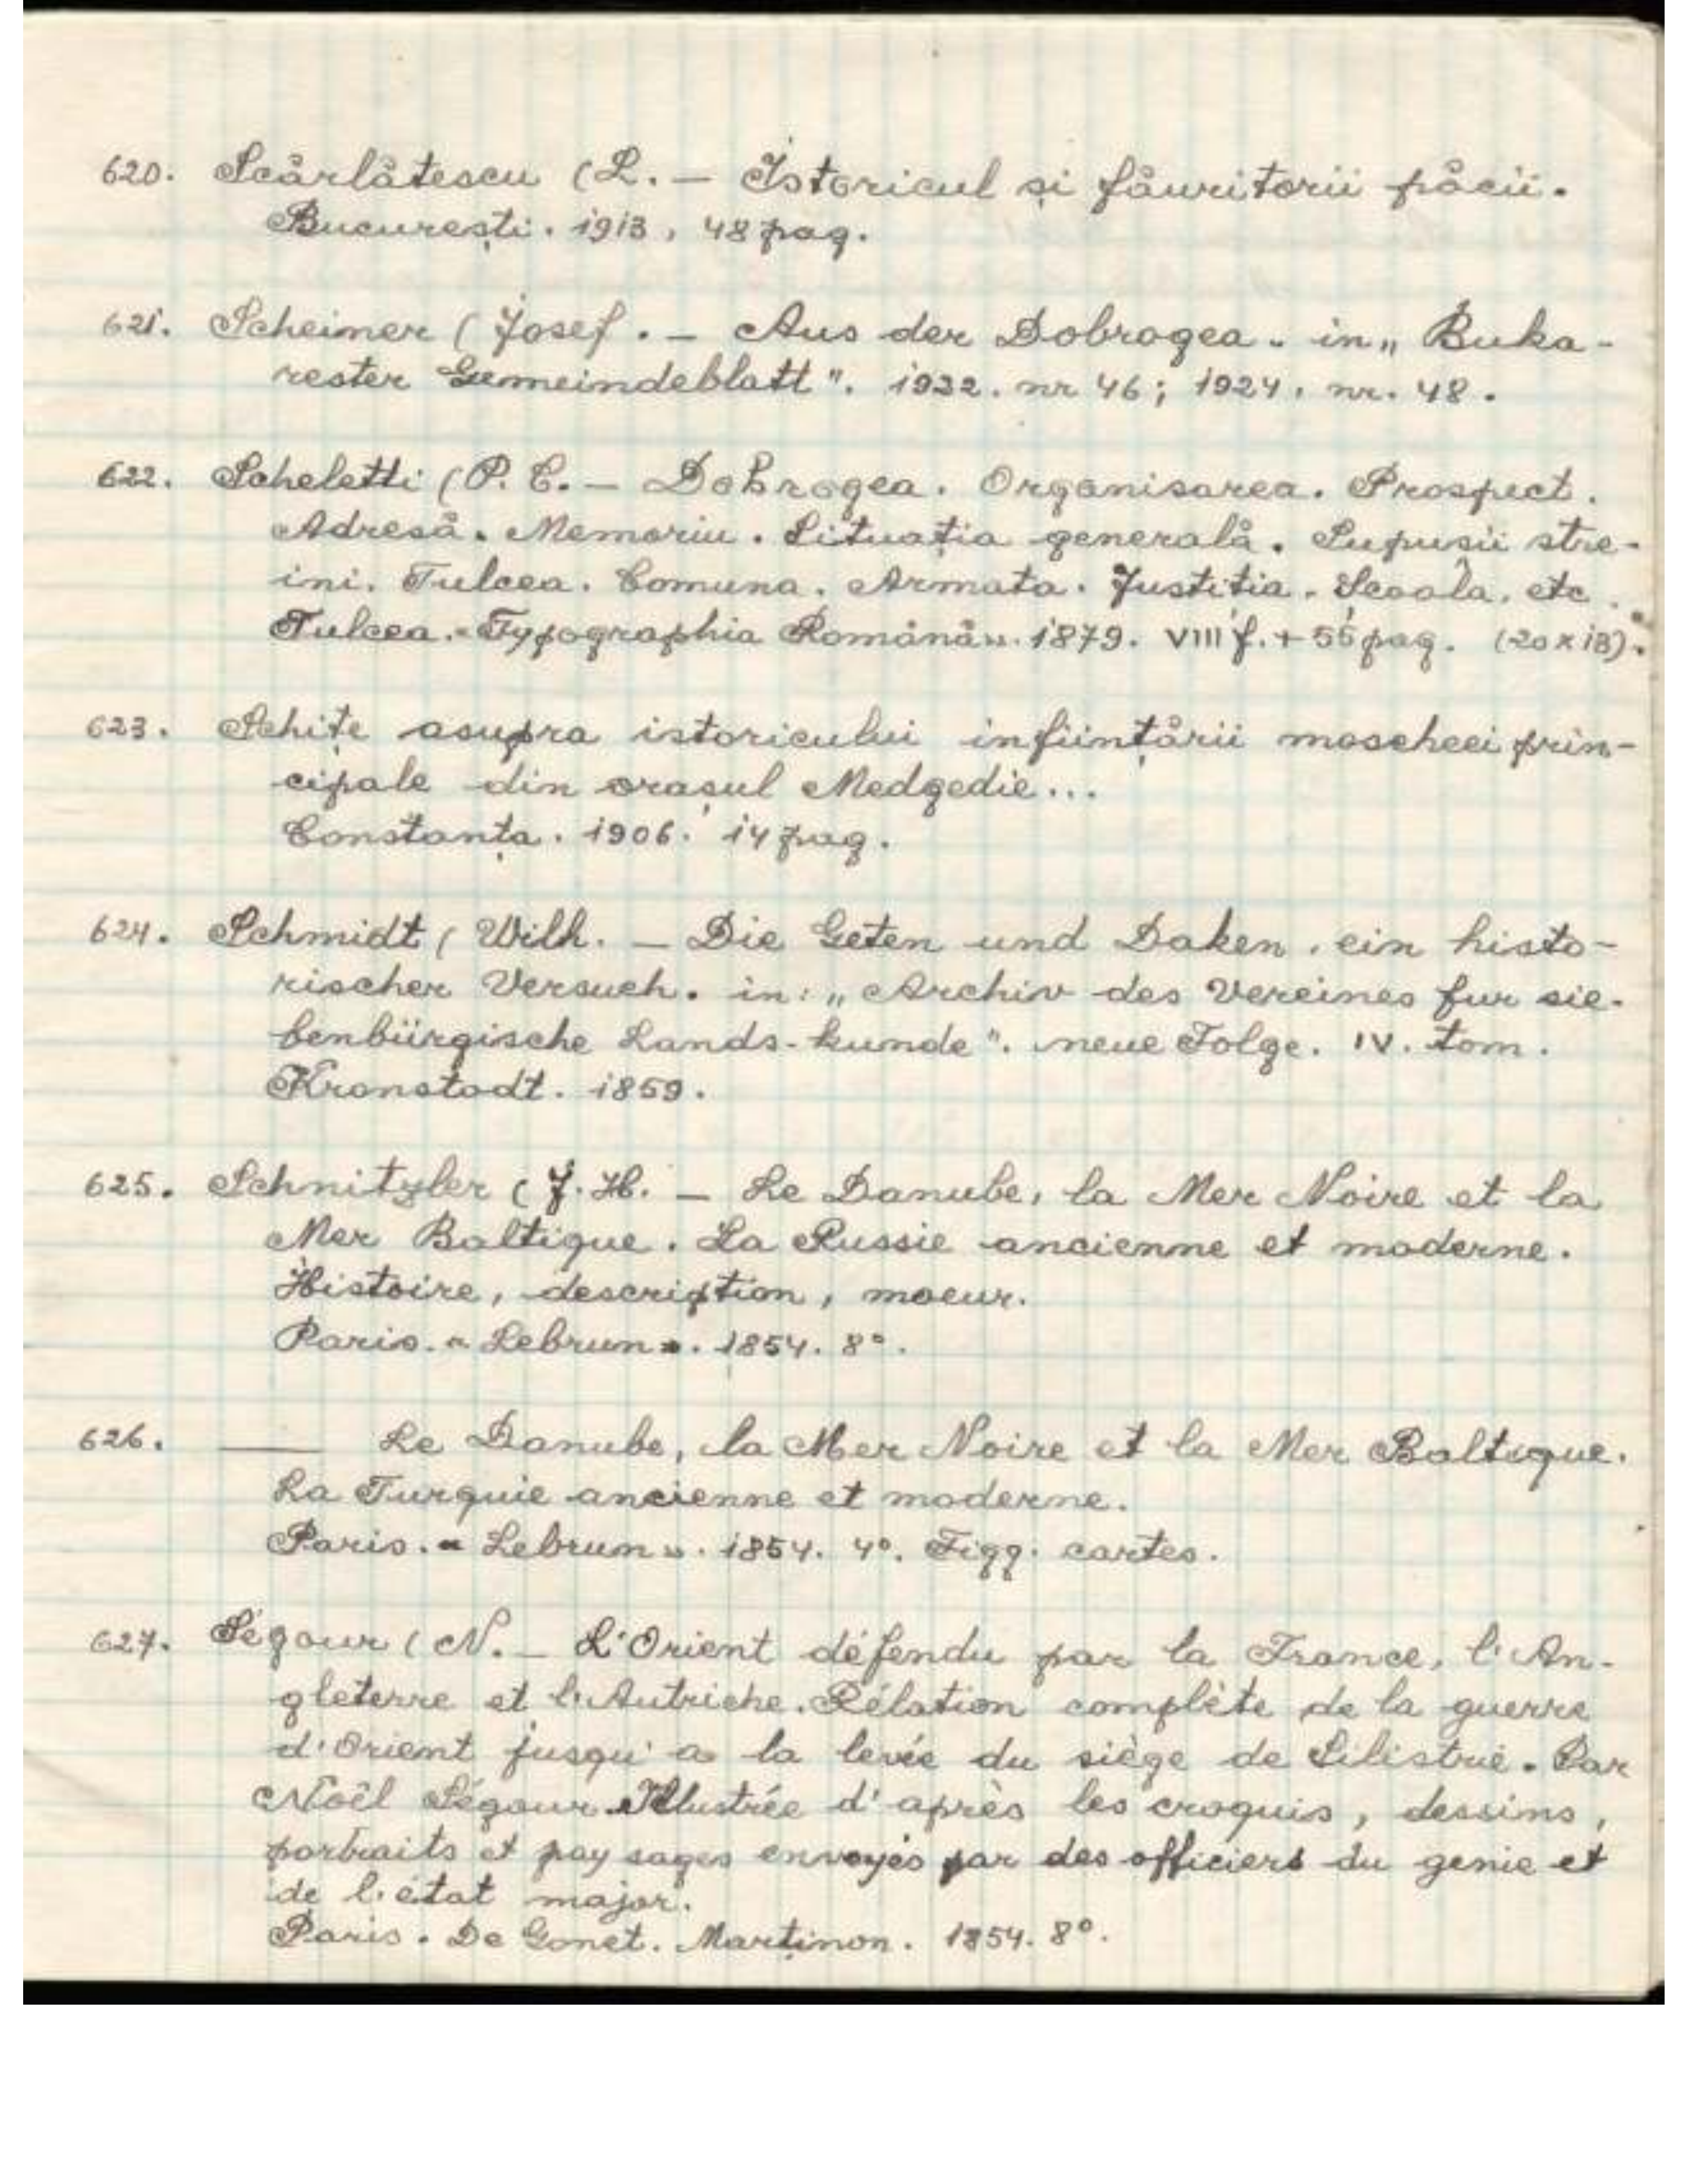 620. Scărlătescu (L. — Istoricul și făuritorii păcii.
București. 1913, 48 pag.
621. Scheiner (Josef. — Aus der Dobrogea. in „Buka-
rester Gemeindeblatt". 1932. nr 46; 1924, nr. 48.
622. Scheletti (P. C. — Dobrogea. Organisarea. Prospect.
Adresă. Memoriu. Situația generală. Supușii stre-
ini. Tulcea. Comuna. Armata. Justiția. Scoala. etc.
Tulcea. «Typographia Română». 1879. VIII f. + 55 pag. (20 x 13).
623. Schițe asupra istoricului inființării moscheei prin-
cipale din orașul Medgedie...
Constanța. 1906. 14 pag.
624. Schmidt (Wilh. — Die Geten und Daken, ein histo-
rischer Versuch. in: „Archiv des Vereines fur sie-
benbürgische Lands-kunde". neue Folge. IV. tom.
Kronstadt. 1859.
625. Schnitzler (J. H. — Le Danube, la Mer Noire et la
Mer Baltique. La Russie ancienne et moderne.
Histoire, description, moeur.
Paris. «Lebrun». 1854. 8°.
626. — Le Danube, la Mer Noire et la Mer Baltique.
La Turquie ancienne et moderne.
Paris. «Lebrun». 1854. 4°. Figg. cartes.
627. Ségour (N. — L'Orient défendu par la France, l'An-
gleterre et l'Autriche. Rélation complète de la guerre
d'Orient jusqu'a la levée du siège de Silistrie. Par
Noël Ségour. Illustrée d'après les croquis, dessins,
portraits et pay sages envoyés par des officiers du genie et
de l'état major.
Paris. De Gonet. Martinon. 1854. 8°.